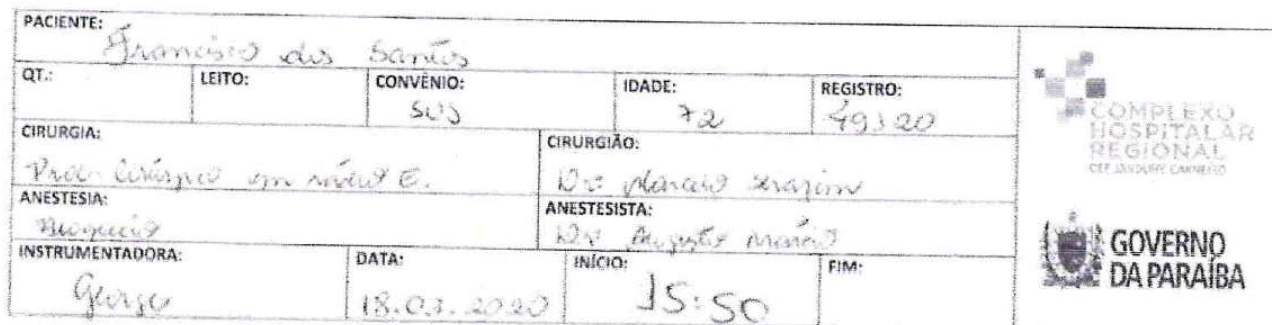 PACIENTE: Francisco dos Santos
QT.: LEITO: CONVÊNIO: SUS IDADE: 72 REGISTRO: 49320
CIRURGIA: em rádio E. CIRURGIÃO: Dr. Márcio Serafim
ANESTESIA: Bloqueio ANESTESISTA: Dr. Augusto
INSTRUMENTADORA: George DATA: 18.03.2020 INÍCIO: 15:50 FIM:
COMPLEXO
HOSPITALAR
REGIONAL
DEP. JANDUHY CARNEIRO
GOVERNO
DA PARAÍBA